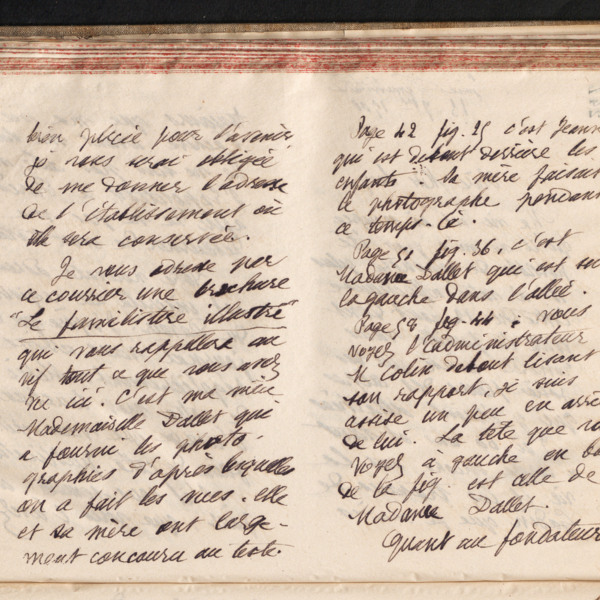 bien placée pour l'avenir
je vous serai obligée
de me donner l'adresse
de l'établissement où
elle sera conservée.
Je vous adresse par
ce courrier une brochure
"Le familistère illustré"
qui vous rappellera au
vif tout ce que vous avez
vu ici. C'est ma nièce
Mademoiselle Dallet qui
a fourni les photo-
graphies d'après lesquelles
on a fait les vues. elle
et sa mère ont large-
ment concouru au texte.
Page 42 fig. 25 c'est Jeanne
qui est debout derrière les
enfants : sa mère faisant
la photographe pendant
ce temps-là.
Page 51 fig. 36, c'est
Madame Dallet qui est sur
la gauche dans l'allée.
Page 58 fig. 44 : vous
voyez l'administrateur
M Colin debout lisant
son rapport, je suis
assise un peu en arrière
de lui. La tête que vous
voyez à gauche en bas
de la fig. est celle de
Madame Dallet.
Quant au fondateur